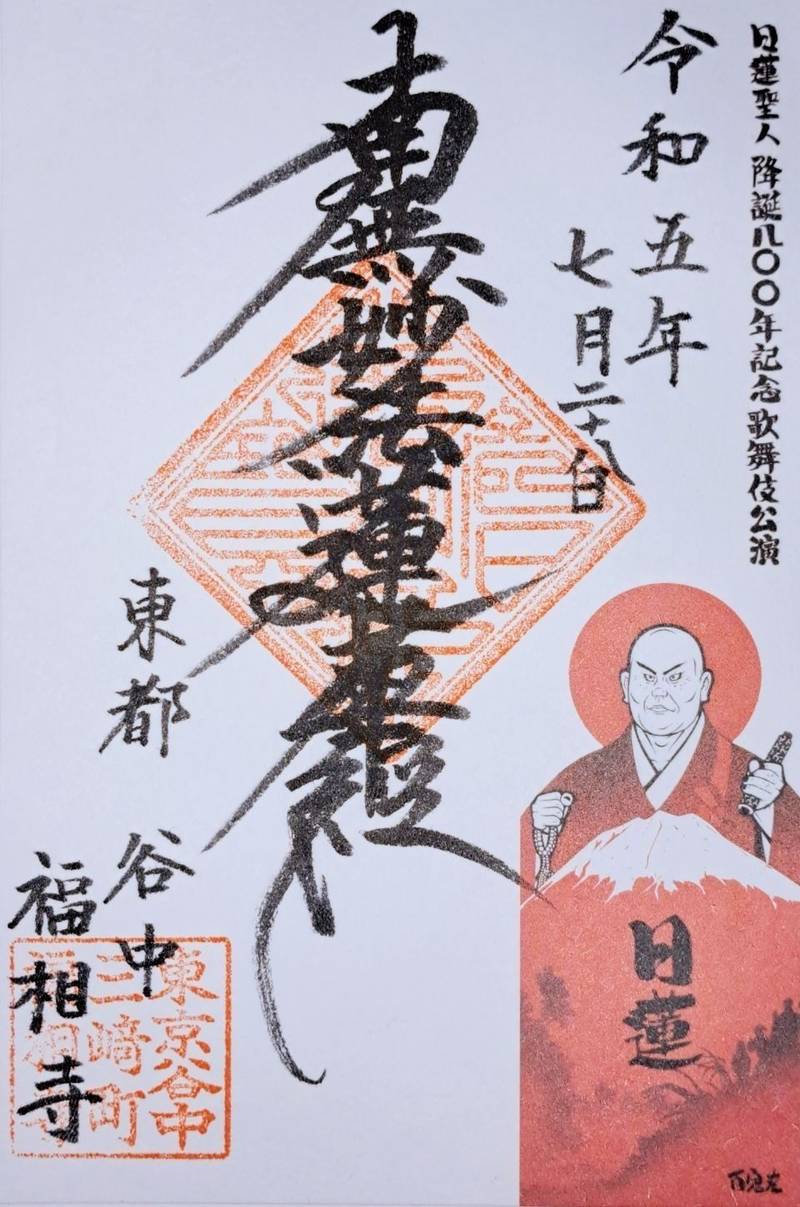 日蓮聖人降誕八〇〇年記念歌舞伎公演
令和五年
七月二十八日
南無妙法蓮華経
東都
谷中
福相寺
東京谷中
三﨑町
福相寺
日蓮